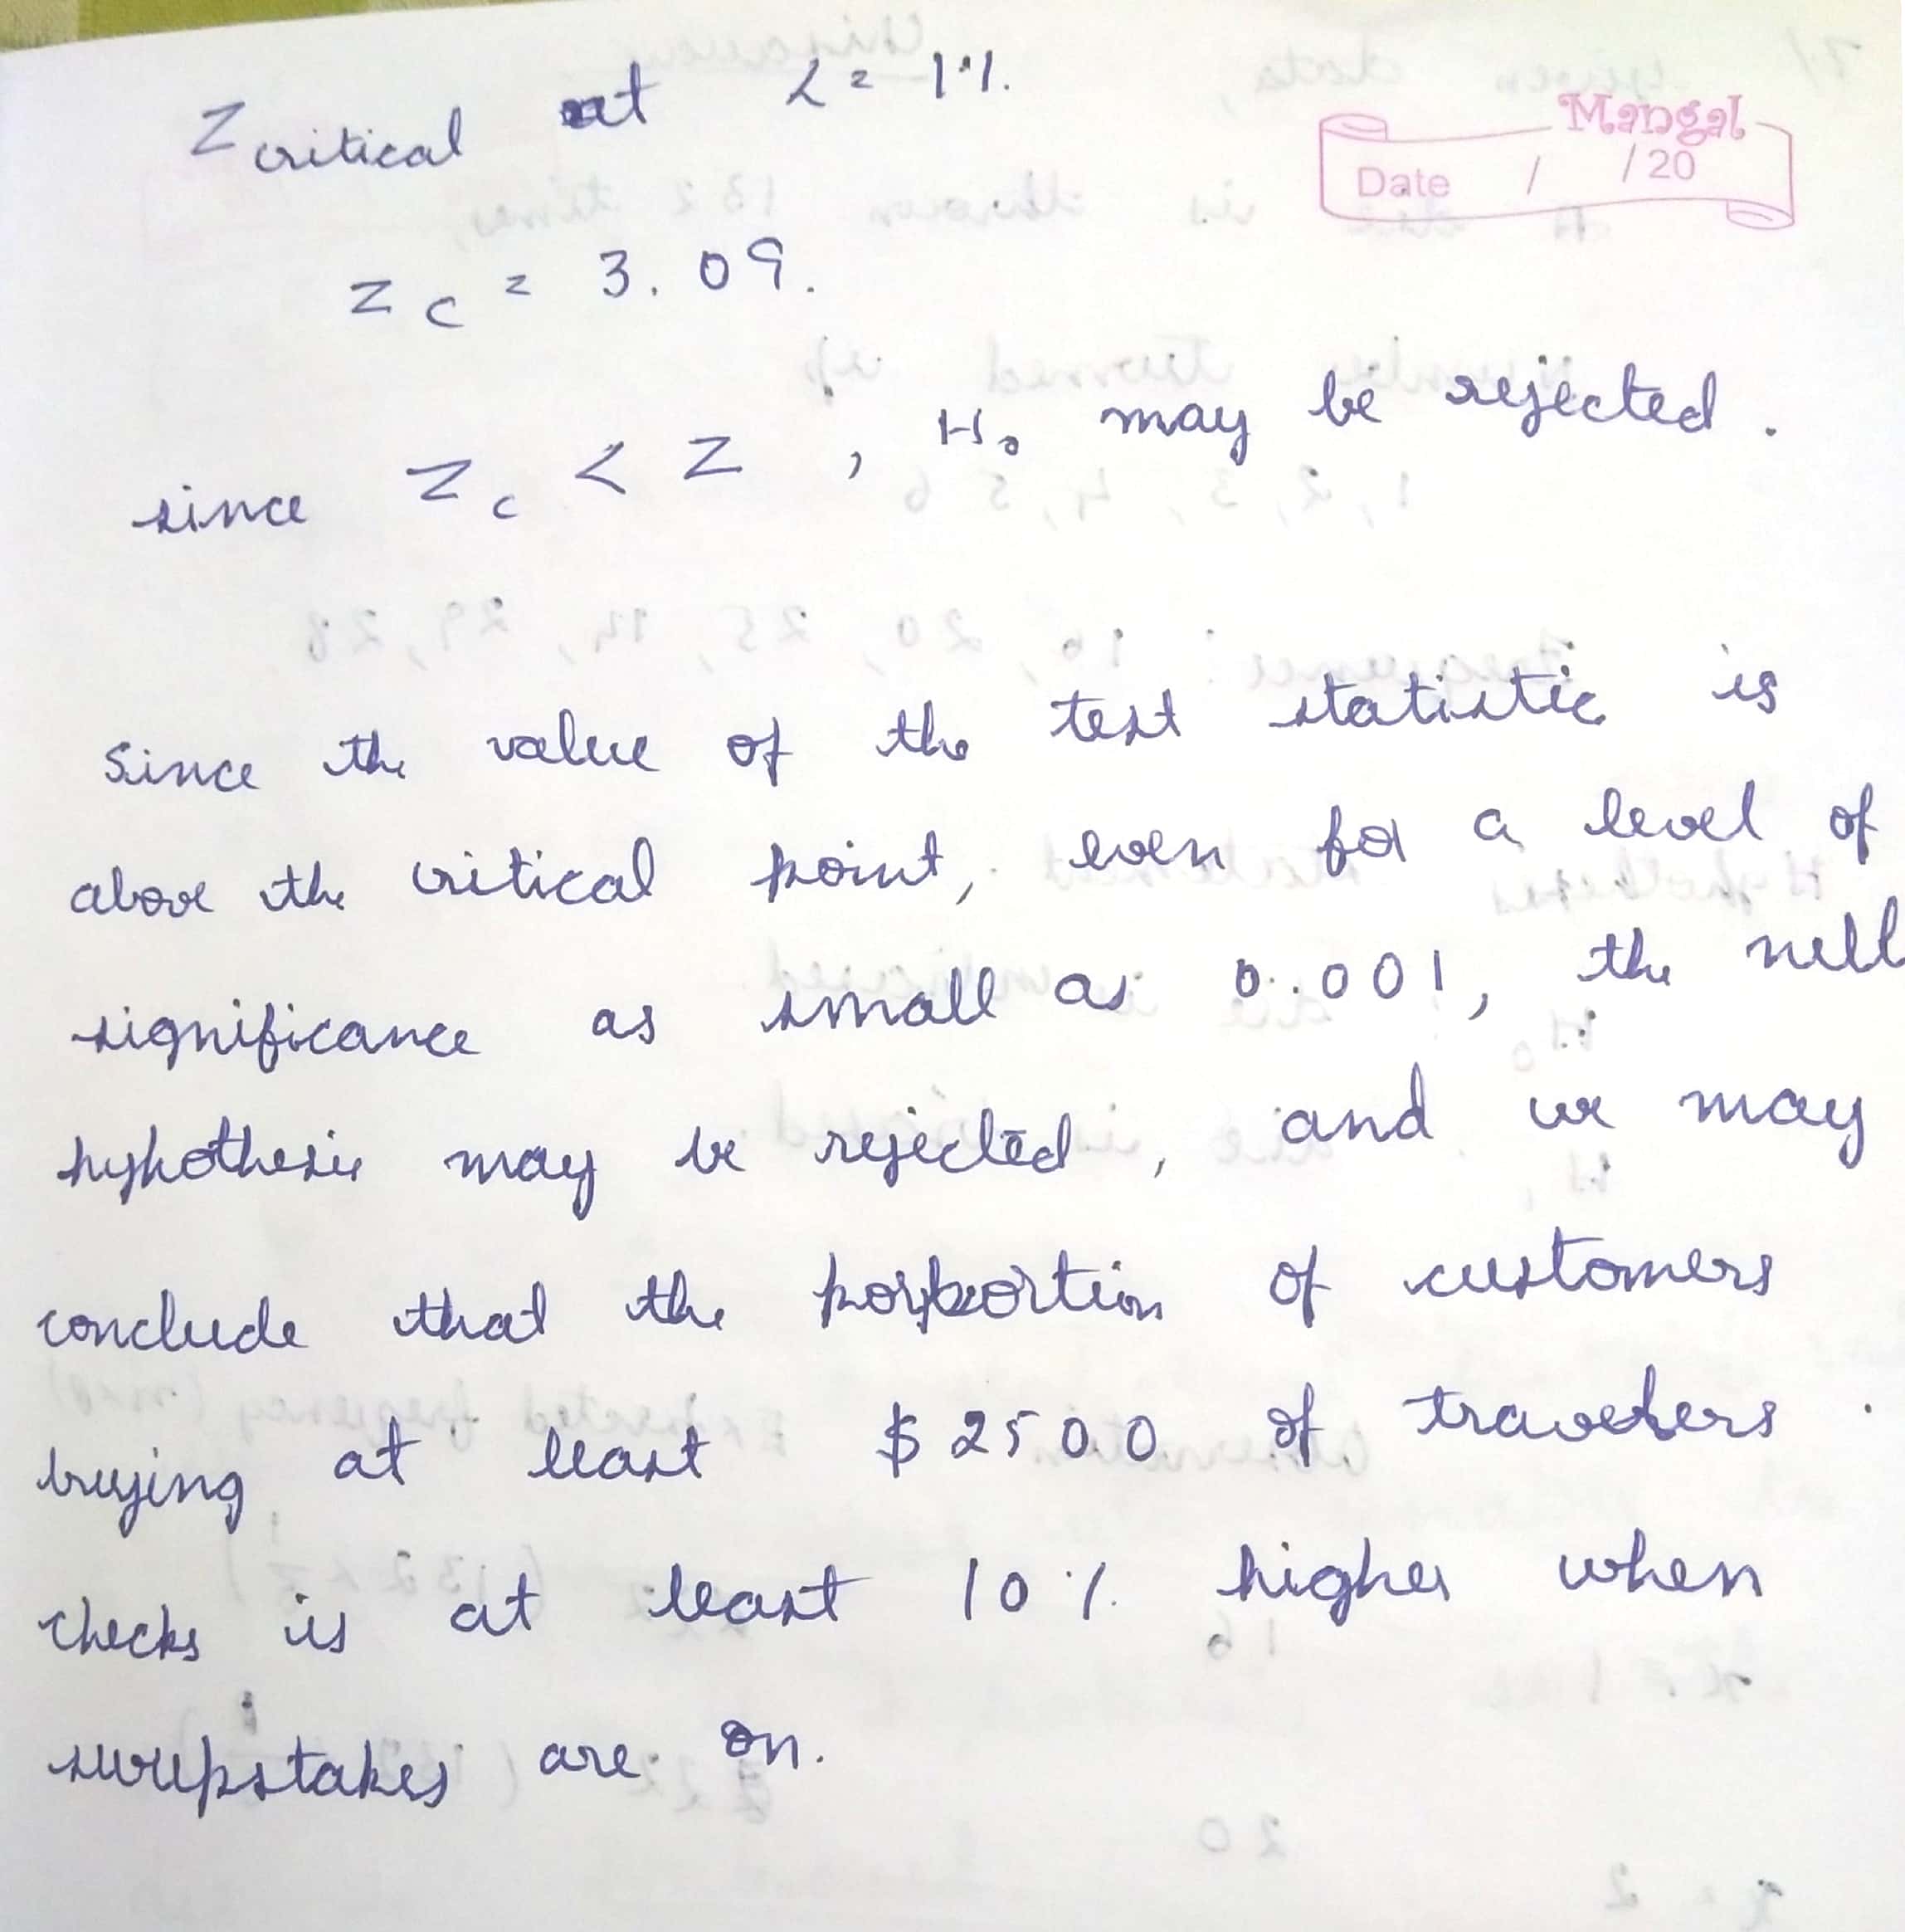 Z critical at α = 1%.
Mangal
Date / /20
Z c = 3.09.
since Z c < Z , H₀ may be rejected.
Since the value of the test statistic is
above the critical point, even for a level of
significance as small as 0.001, the null
hypothesis may be rejected, and we may
conclude that the porportion of customers
buying at least $2500 of travelers
checks is at least 10% higher when
sweepstakes are on.